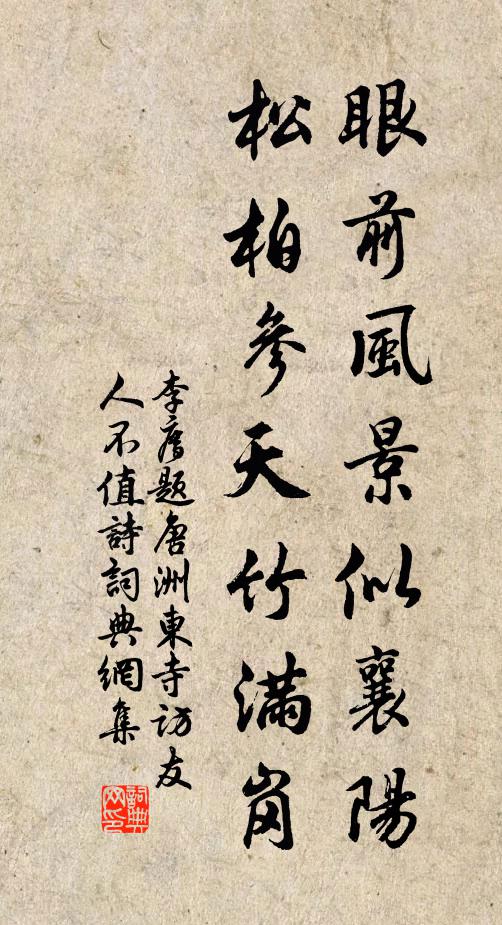 眼前風景似襄陽
松柏參天竹滿崗
李廌題唐洲東寺訪友
人不值詩詞典網集
詞典
网印